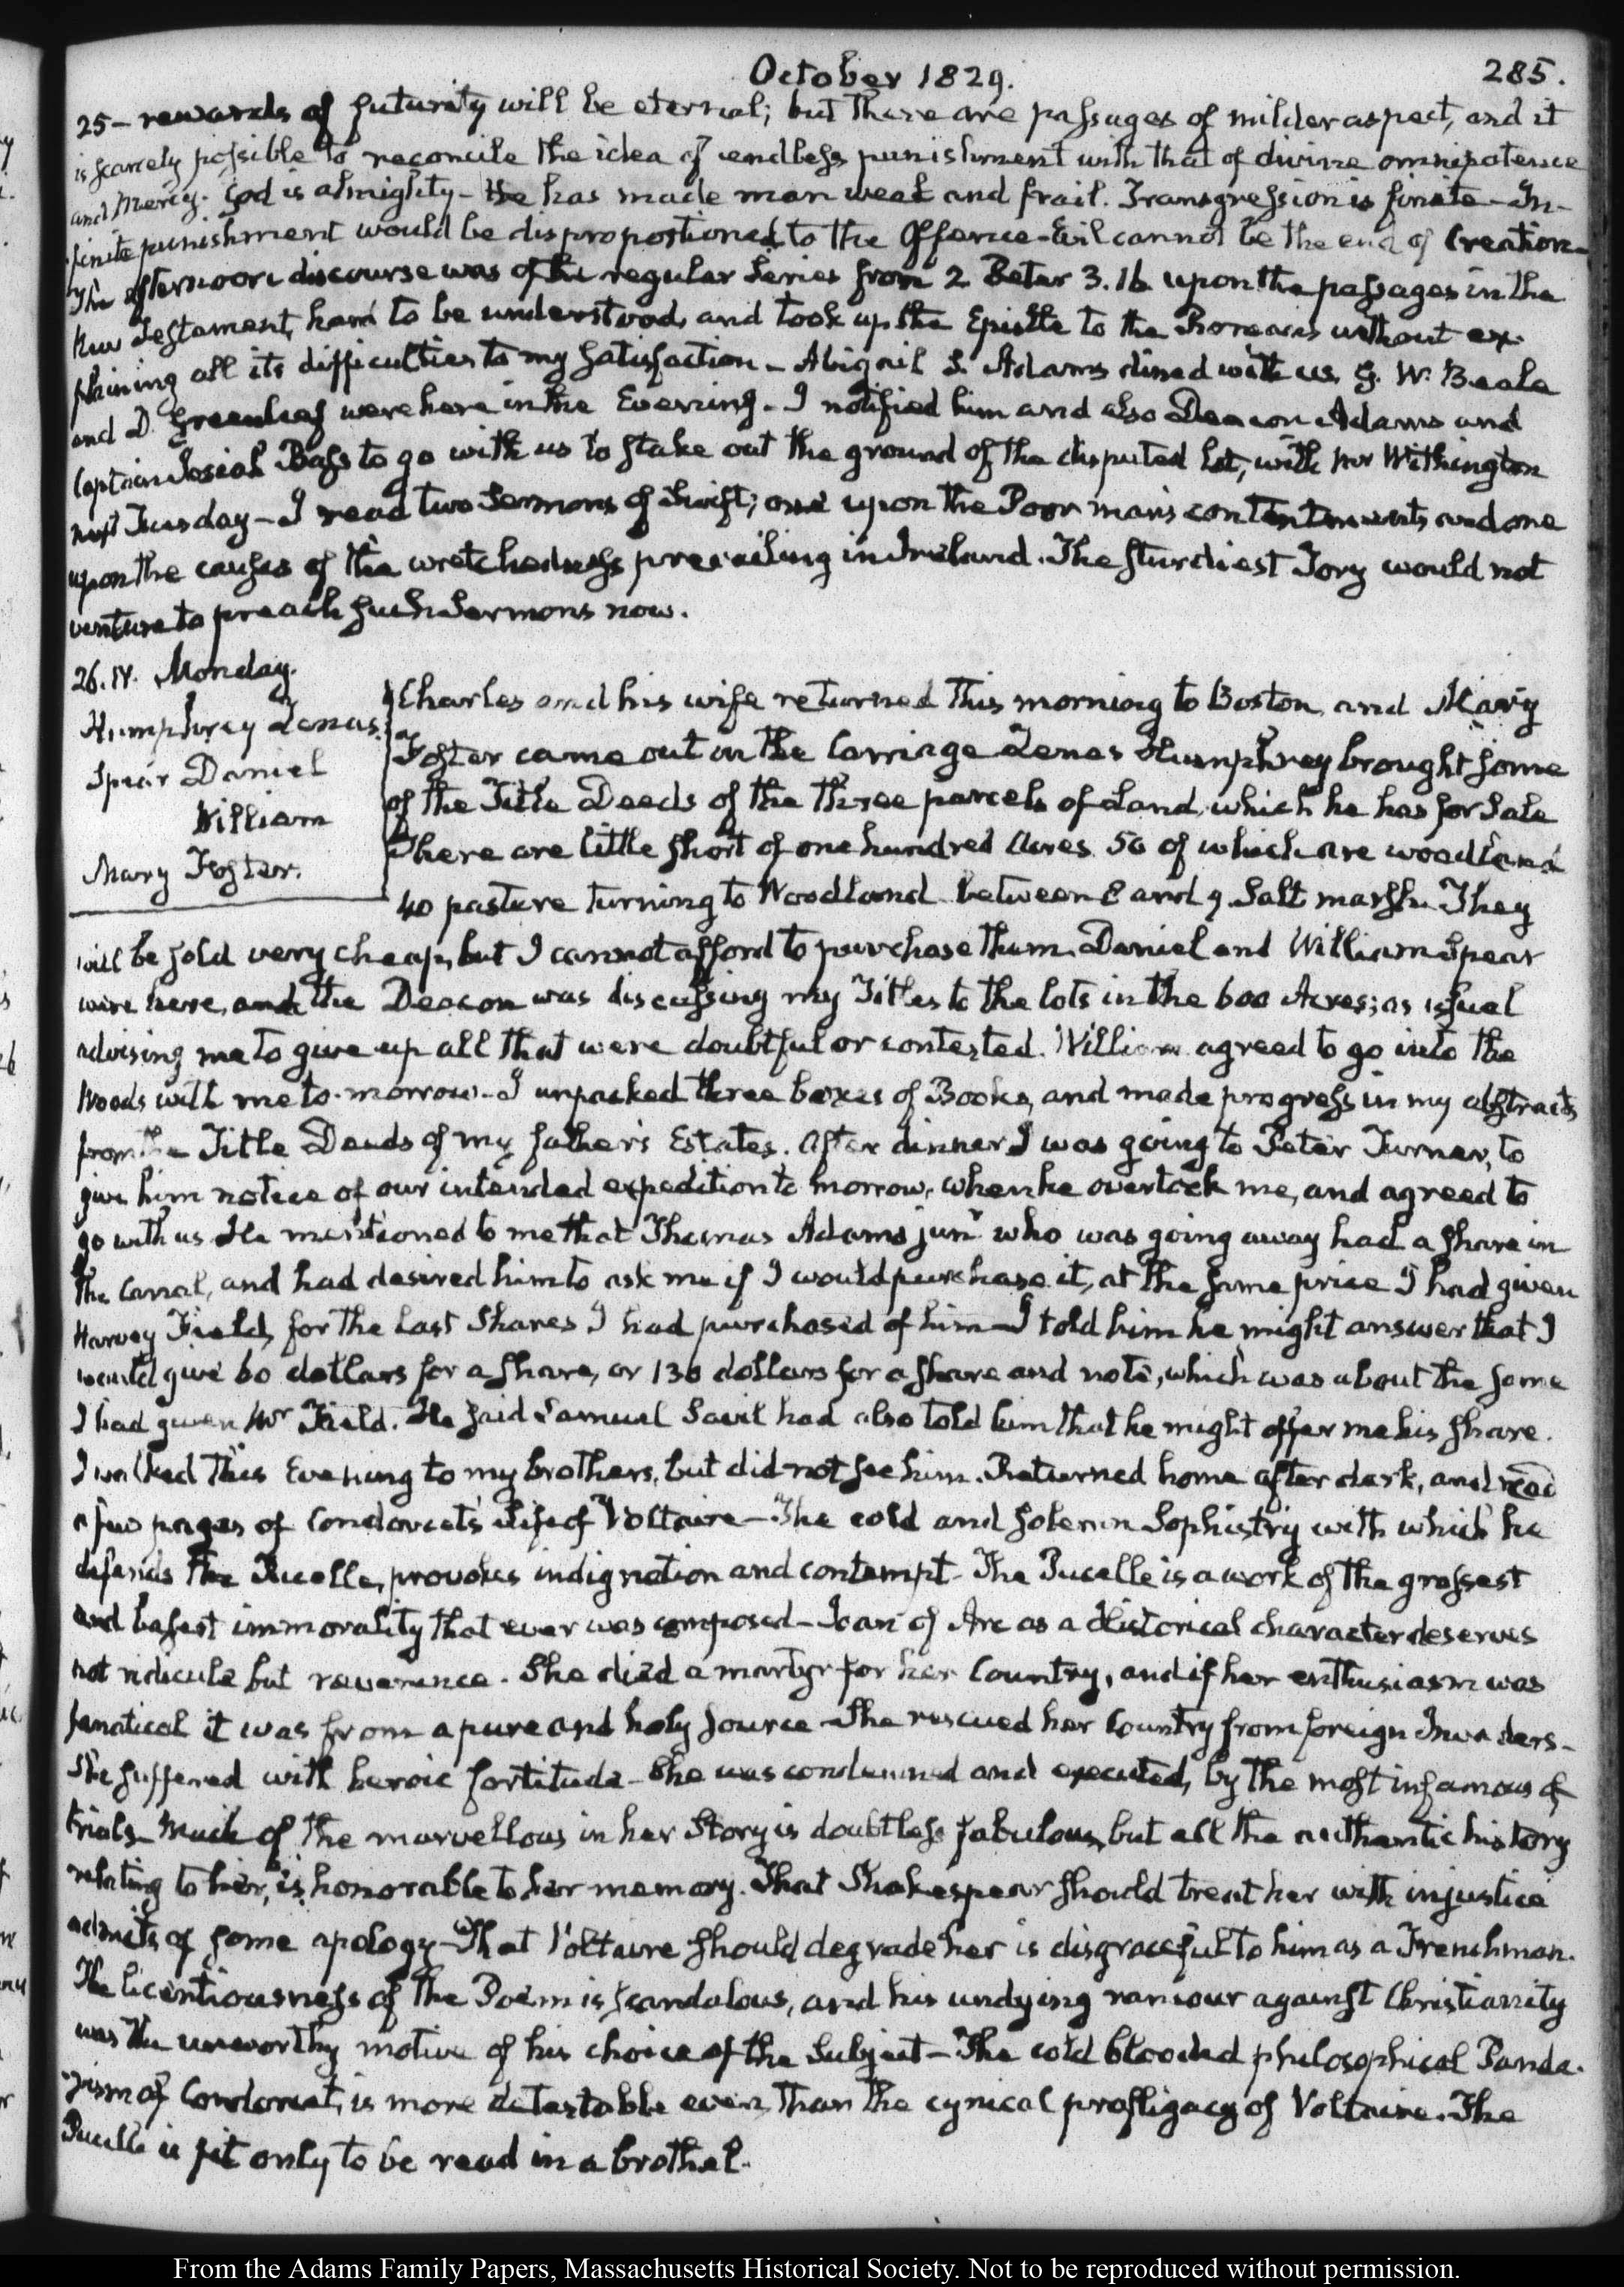 October 1829.
285.
25 - rewards of futurity will be eternal; but there are passages of milder aspect, and it
is scarcely possible to reconcile the idea of endless punishment with that of divine omnipotence
and Mercy. God is almighty - He has made man weak and frail. Transgression is finite - In-
finite punishment would be disproportioned to the Offence - Evil cannot be the end of Creation -
The afternoon discourse was of the regular Series from 2 Peter 3.16 upon the passages in the
New Testament, hard to be understood, and took up the Epistle to the Romans without ex-
plaining all its difficulties to my satisfaction - Abigail S. Adams dined with us. G. W. Beale
and D. Greenleaf were here in the Evening - I notified him and also Deacon Adams and
Captain Josiah Bass to go with us to stake out the ground of the disputed lot, with Mr Withington
next Tuesday - I read two Sermons of Swift; one upon the Poor man's contentments and one
upon the causes of the wretchedness prevailing in Ireland. The sturdiest Tory would not
venture to preach such Sermons now.
26. IV. Monday.
Humphrey Lenas.
Spear Daniel
William
Mary Foster.
Charles and his wife returned this morning to Boston, and Mary
Foster came out in the Carriage Lenas Humphrey brought some
of the Title Deeds of the three parcels of Land, which he has for Sale
There are little short of one hundred Acres 50 of which are woodland
40 pasture turning to Woodland between 8 and 9 Salt marsh. They
will be sold very cheap, but I cannot afford to purchase them. Daniel and William Spear
were here, and the Deacon was discussing my Titles to the lots in the 600 Acres; as usual
advising me to give up all that were doubtful or contested. William agreed to go into the
Woods with me to-morrow - I unpacked three boxes of Books, and made progress in my abstracts
from the Title Deeds of my father's Estates. After dinner I was going to Peter Turner, to
give him notice of our intended expedition to morrow, when he overtook me, and agreed to
go with us. He mentioned to me that Thomas Adams junr who was going away had a share in
the Canal, and had desired him to ask me if I would purchase it, at the same price I had given
Harvey Field, for the last Shares I had purchased of him - I told him he might answer that I
would give 60 dollars for a share, or 130 dollars for a share and note, which was about the same
I had given Mr Field. He said Samuel Savil had also told him that he might offer me his share.
I walked this Evening to my brother's, but did not see him. Returned home after dark, and read
a few pages of Condorcet's Life of Voltaire - The cold and solemn Sophistry with which he
defends the Pucelle, provokes indignation and contempt - The Pucelle is a work of the grossest
and basest immorality that ever was composed - Joan of Arc as a Historical character deserves
not ridicule but reverence. She died a martyr for her Country, and if her enthusiasm was
fanatical it was from a pure and holy source - She rescued her Country from foreign Invaders -
She suffered with heroic fortitude - She was condemned and executed, by the most infamous of
trials - Much of the marvellous in her Story is doubtless fabulous, but all the authentic history
relating to her, is honorable to her memory. That Shakespear should treat her with injustice
admits of some apology - That Voltaire should degrade her is disgraceful to him as a Frenchman.
The licentiousness of the Poem is scandalous, and his undying rancour against Christianity
was the unworthy motive of his choice of the Subject - The cold blooded philosophical Panda-
rism of Condorcet, is more detestable even than the cynical profligacy of Voltaire. The
Pucelle is fit only to be read in a brothel.
From the Adams Family Papers, Massachusetts Historical Society. Not to be reproduced without permission.